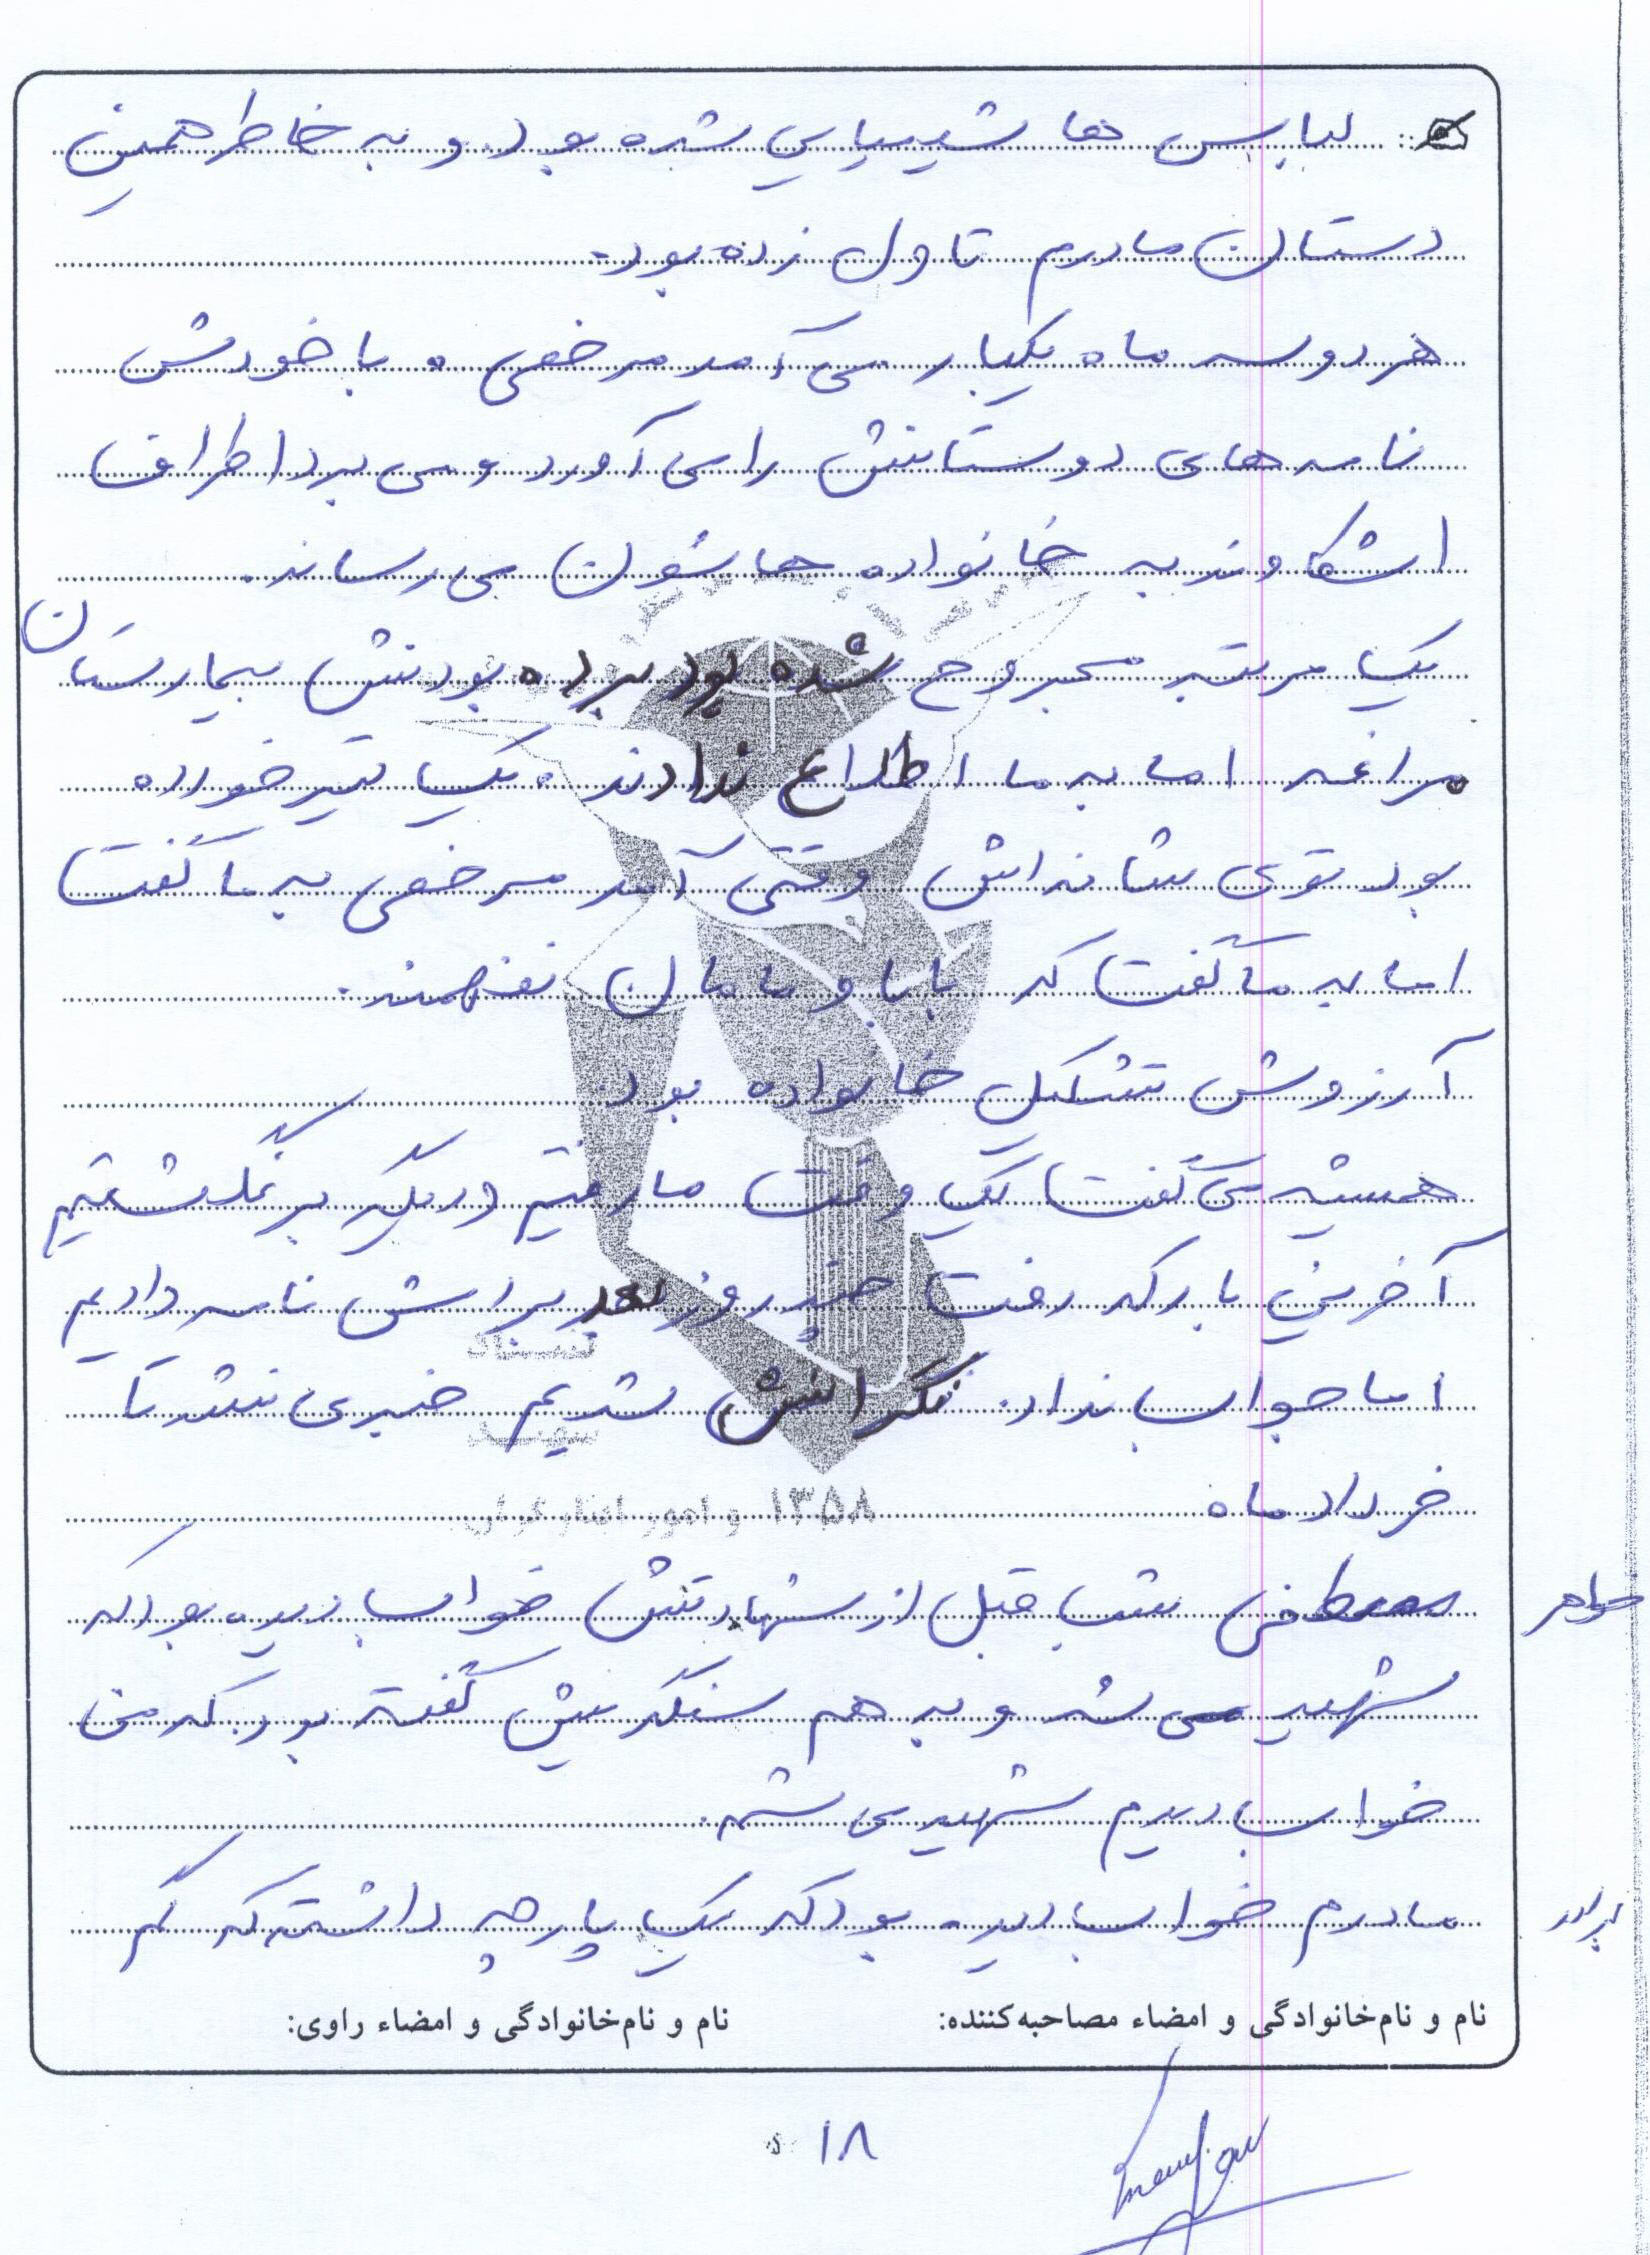 لباس ها شیمیایی شده بود و به خاطر همین
دستان مادرم تاول زده بود.
هر دو سه ماه یکبار می آمد مرخصی و با خودش
نامه های دوستانش را می آورد و می برد اطراف
اشکاوند به خانواده هاشون می رساند.
یک مرتبه مجروح شده بود برده بودنش بیمارستان
مراغه اما به ما اطلاع ندادند. یک تیر خورده
بود توی شانه اش وقتی آمد مرخصی به ما گفت
اما به ما گفت که بابا و مامان نفهمند.
آرزوش تشکیل خانواده بود.
همیشه می گفت یک وقت ما رفتیم و دیگه برنگشتیم
آخرین بار که رفت چند روز بعد براش نامه دادیم
اما جواب نداد. نگرانش شدیم خبری نشد تا
خرداد ماه
خواهر
مصطفی شب قبل از شهادتش خواب دیده بود که
شهید می شه و به هم سنگریش گفته بود که من
خواب دیدم شهید می شم.
برادر
مادرم خواب دیده بود که یک پارچه داشته که گم
نام و نام‌خانوادگی و امضاء مصاحبه‌کننده:
نام و نام‌خانوادگی و امضاء راوی:
۱۳۵۸ و امور ایثارگران
۱۸